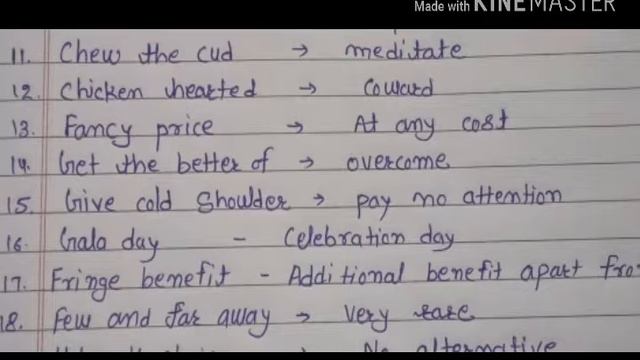 Made with KINEMASTER
11. Chew the cud → meditate
12. Chicken hearted → Coward
13. Fancy price → At any cost
14. Get the better of → overcome
15. Give cold Shoulder → pay no attention
16. Gala day - Celebration day
17. Fringe benefit - Additional benefit apart fro
18. Few and far away → very rare
No alternative